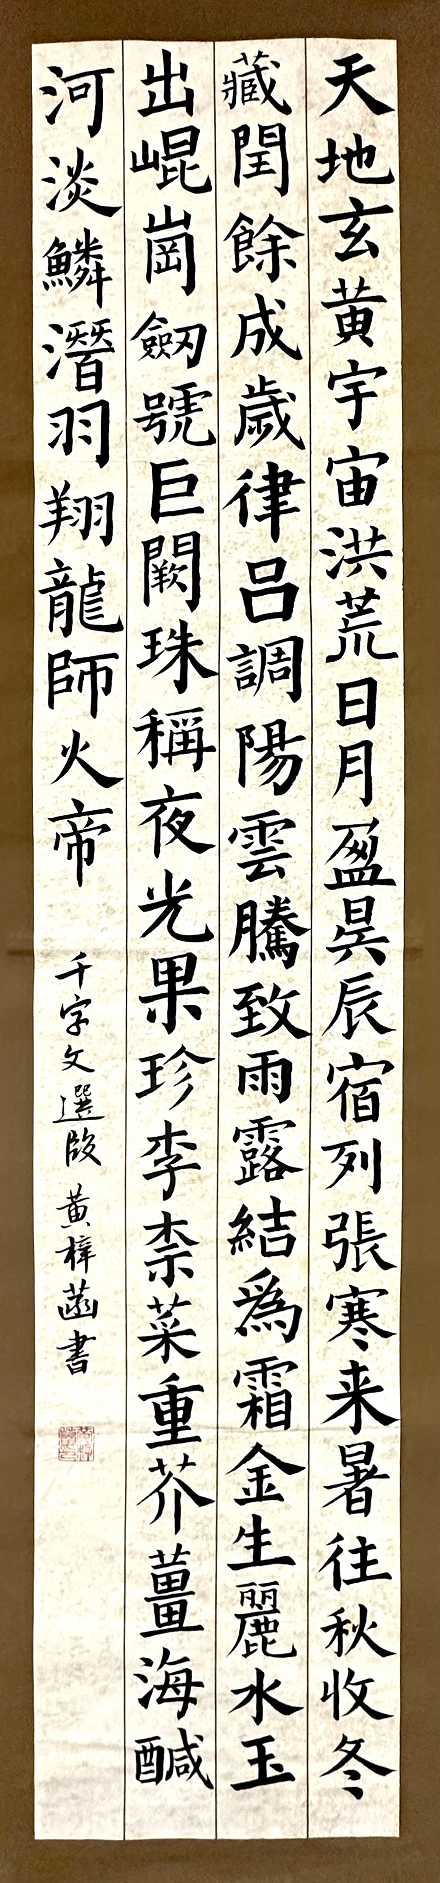 天地玄黄宇宙洪荒日月盈昃辰宿列張寒来暑往秋收冬
藏閏餘成歲律吕調陽雲騰致雨露結爲霜金生麗水玉
出崐崗劔號巨闕珠稱夜光果珍李柰菜重芥薑海醎
河淡鱗潛羽翔龍師火帝
千字文選段 黄梓菡書